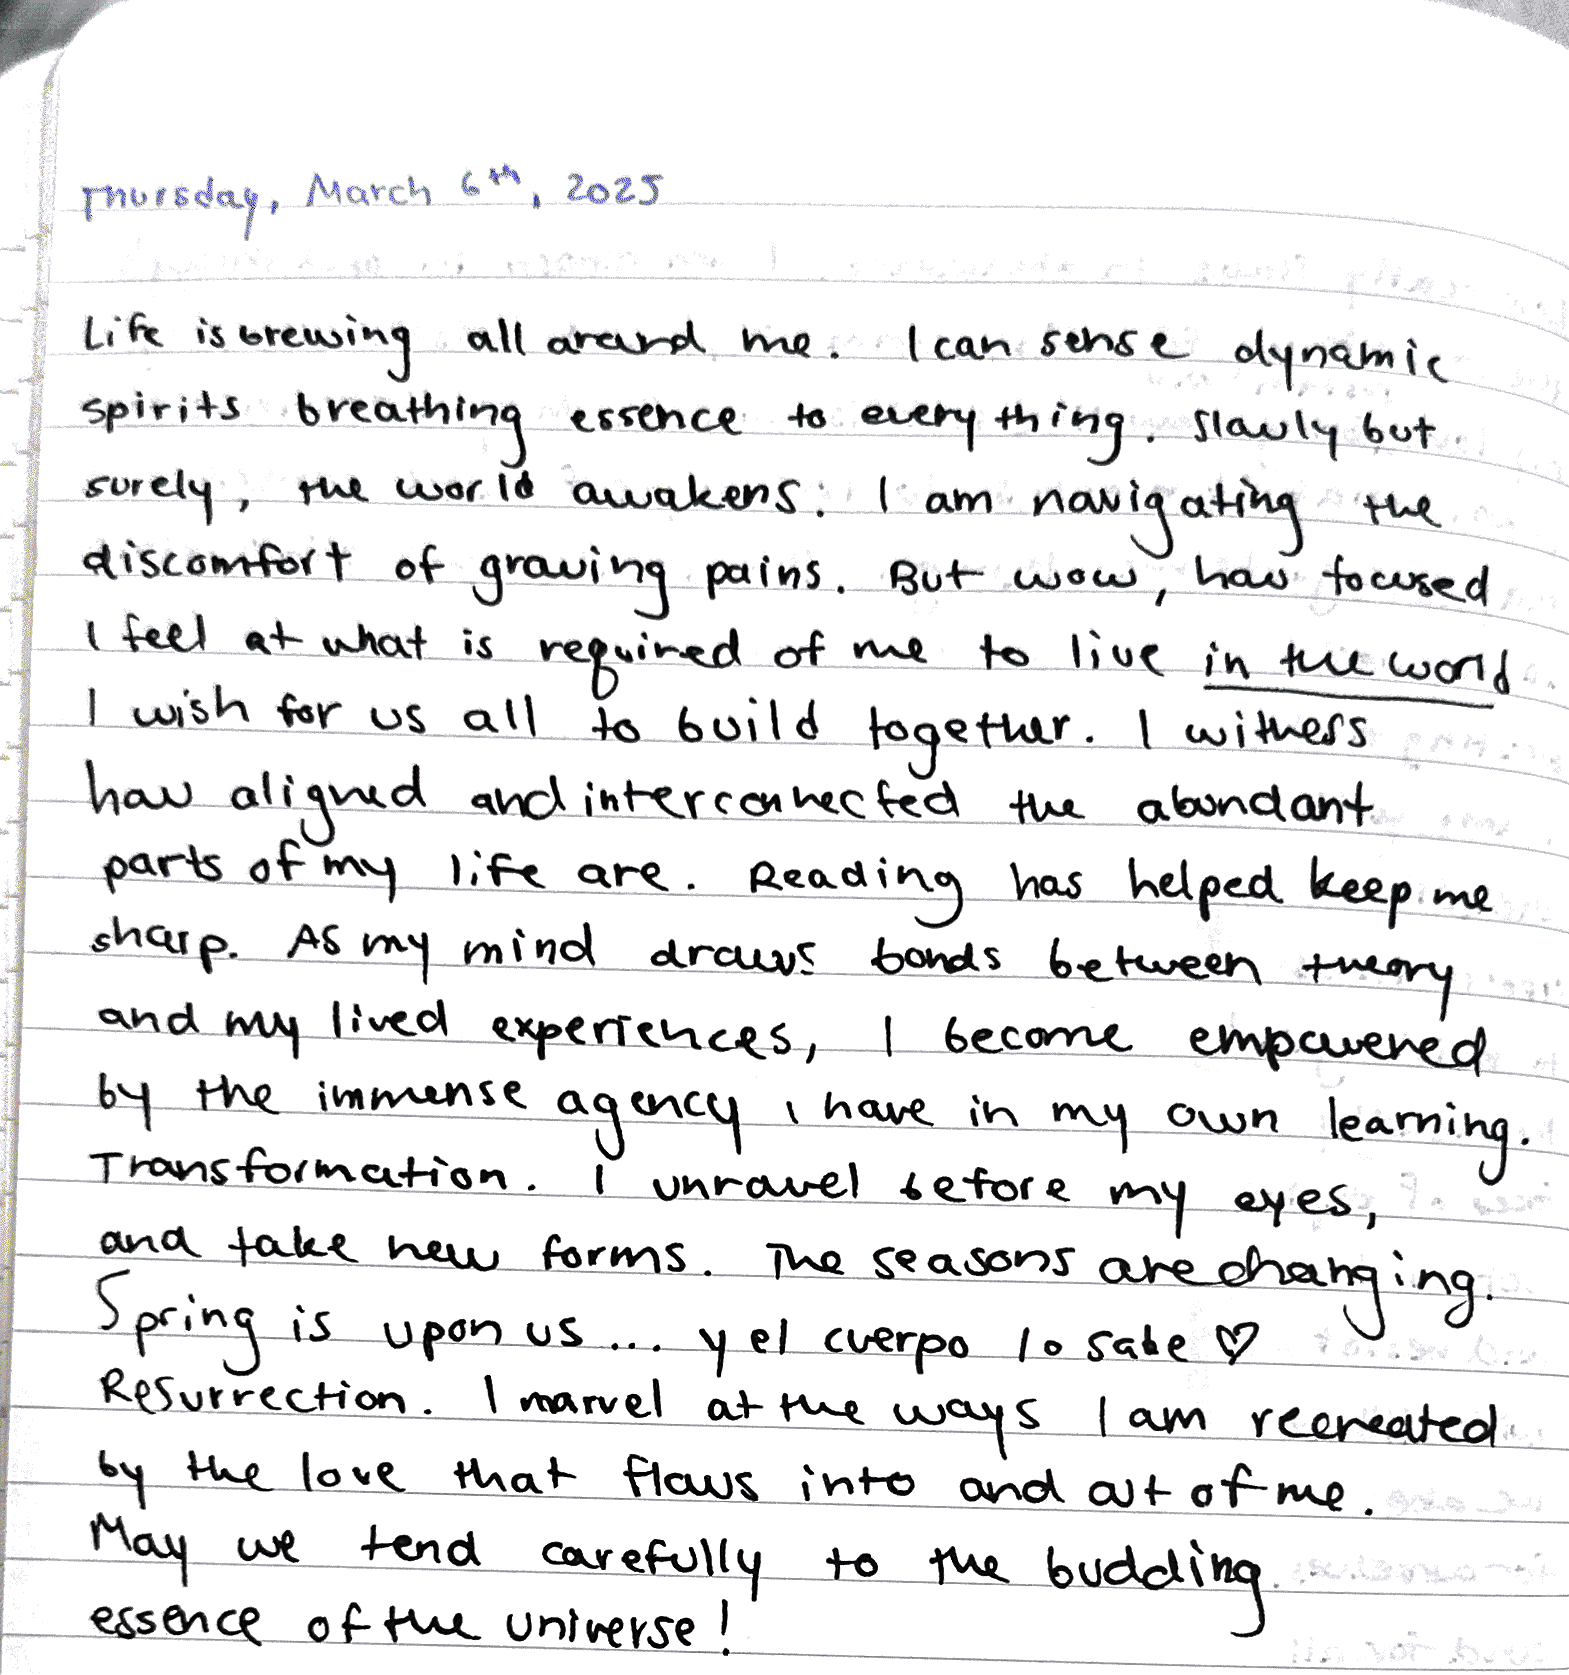 Thursday, March 6th, 2025
Life is brewing all around me. I can sense dynamic
spirits breathing essence to everything. Slowly but
surely, the world awakens. I am navigating the
discomfort of growing pains. But wow, how focused
I feel at what is required of me to live in the world
I wish for us all to build together. I witness
how aligned and interconnected the abundant
parts of my life are. Reading has helped keep me
sharp. As my mind draws bonds between theory
and my lived experiences, I become empowered
by the immense agency I have in my own learning.
Transformation. I unravel before my eyes,
and take new forms. The seasons are changing.
Spring is upon us... y el cuerpo lo sabe ♡
Resurrection. I marvel at the ways I am recreated
by the love that flows into and out of me.
May we tend carefully to the budding
essence of the universe!